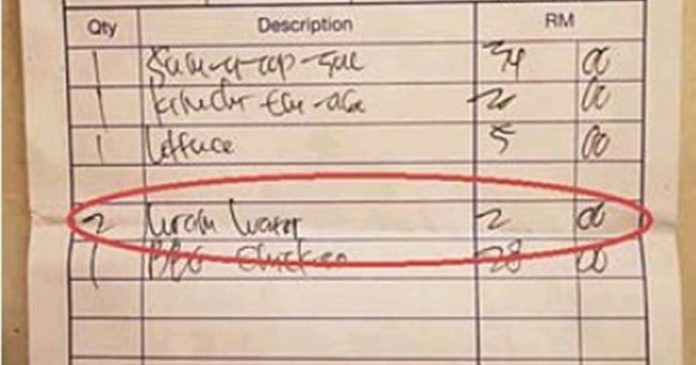 Qty Description RM
1 Sam-gyup-sal 34 00
1 kimchi 20 00
1 lettuce 5 00
2 warm water 2 00
1 BBQ chicken 28 00